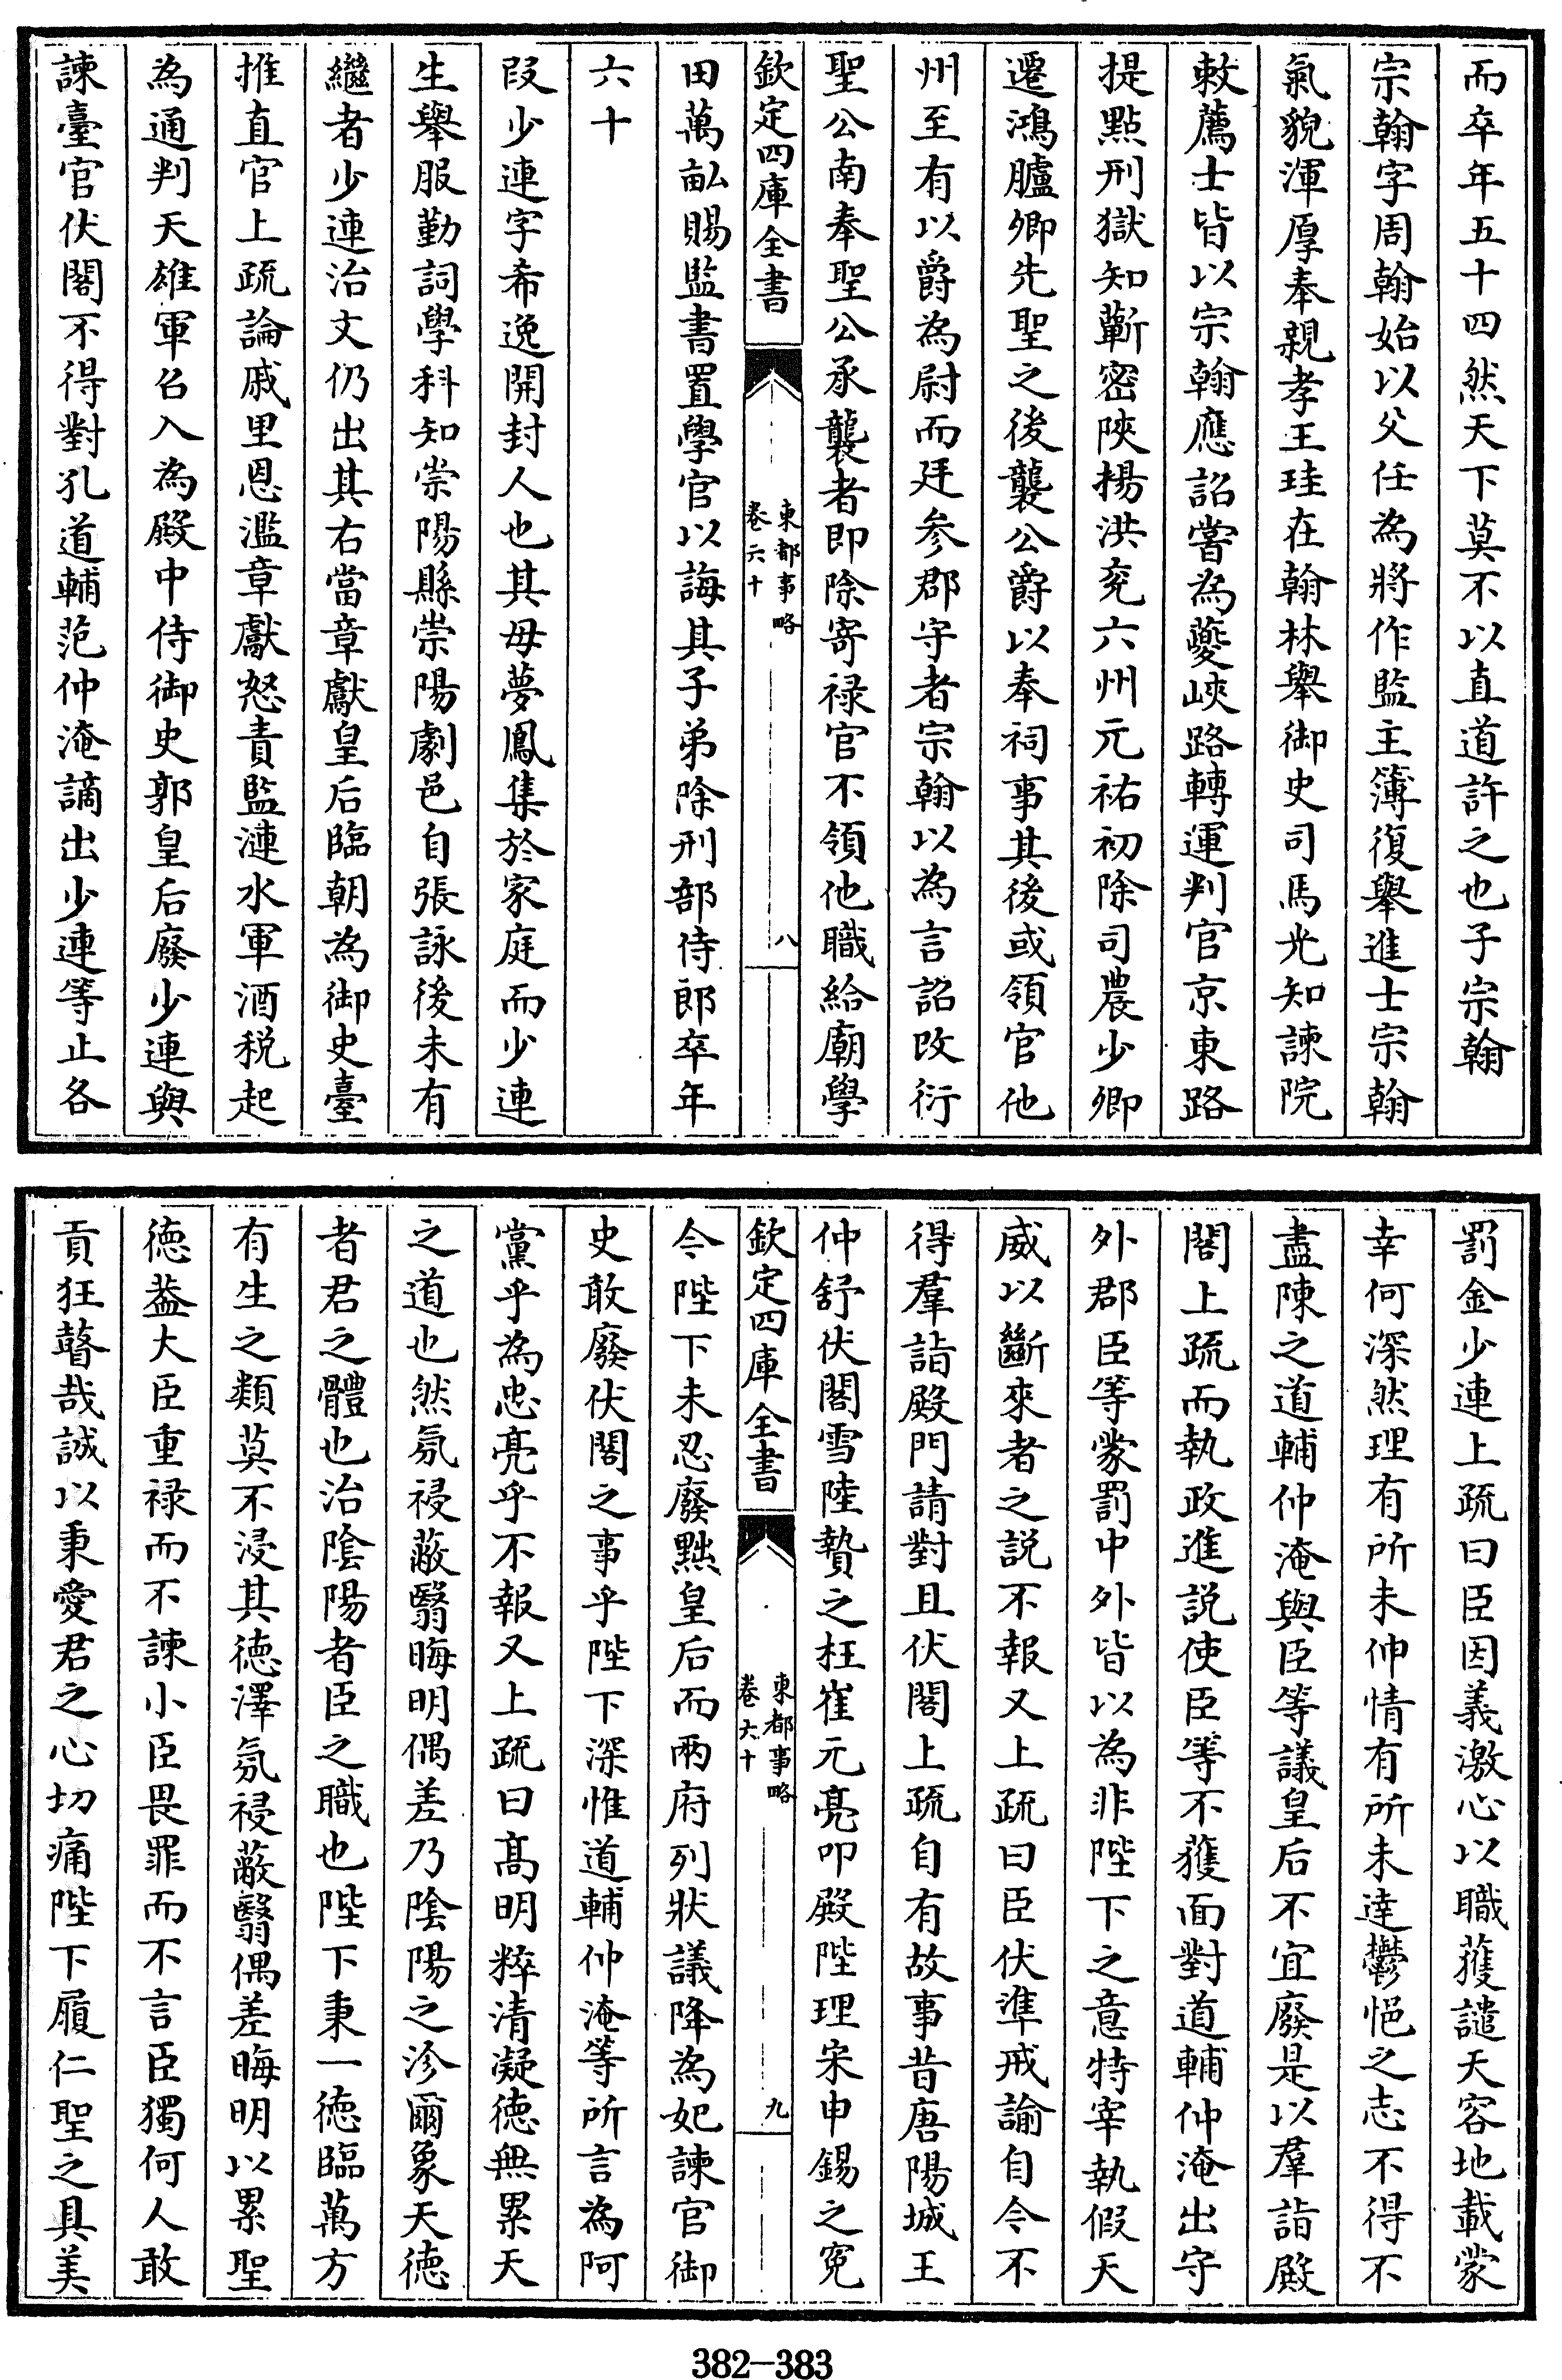 而卒年五十四然天下莫不以直道許之也子宗翰
宗翰字周翰始以父任為將作監主簿復舉進士宗翰
氣貌渾厚奉親孝王珪在翰林舉御史司馬光知諫院
敕薦士皆以宗翰應詔嘗為夔峽路轉運判官京東路
提點刑獄知蘄密陜揚洪兖六州元祐初除司農少卿
遷鴻臚卿先聖之後襲公爵以奉祠事其後或領官他
州至有以爵為尉而廷参郡守者宗翰以為言詔改衍
聖公南奉聖公承襲者即除寄禄官不領他職給廟學
欽定四庫全書
東都事略
卷六十
八
田萬畝賜監書置學官以誨其子弟除刑部侍郎卒年
六十
段少連字希逸開封人也其母夢鳳集於家庭而少連
生舉服勤詞學科知崇陽縣崇陽劇邑自張詠後未有
繼者少連治文仍出其右當章獻皇后臨朝為御史臺
推直官上疏論戚里恩濫章獻怒責監漣水軍酒税起
為通判天雄軍召入為殿中侍御史郭皇后廢少連與
諫臺官伏閤不得對孔道輔范仲淹謫出少連等止各
罰金少連上疏曰臣因義激心以職蒦譴天容地載蒙
幸何深然理有所未伸情有所未達鬱悒之志不得不
盡陳之道輔仲淹與臣等議皇后不宜廢是以羣詣殿
閤上疏而執政進説使臣等不獲面對道輔仲淹出守
外郡臣等蒙罰中外皆以為非陛下之意特宰執假天
威以斷來者之説不報又上疏曰臣伏準戒諭自今不
得羣詣殿門請對且伏閤上疏自有故事昔唐陽城王
仲舒伏閤雪陸贄之枉崔元亮叩殿陛理宋申錫之寃
欽定四庫全書
東都事略
卷六十
九
今陛下未忍廢黜皇后而兩府列狀議降為妃諫官御
史敢廢伏閤之事乎陛下深惟道輔仲淹等所言為阿
黨乎為忠亮乎不報又上疏曰髙明粹清凝徳無累天
之道也然氛祲蔽翳晦明偶差乃陰陽之沴爾象天徳
者君之體也治陰陽者臣之職也陛下秉一徳臨萬方
有生之類莫不浸其徳澤氛祲蔽翳偶差晦明以累聖
徳葢大臣重禄而不諫小臣畏罪而不言臣獨何人敢
貢狂瞽哉誠以秉愛君之心切痛陛下履仁聖之具美
382—383